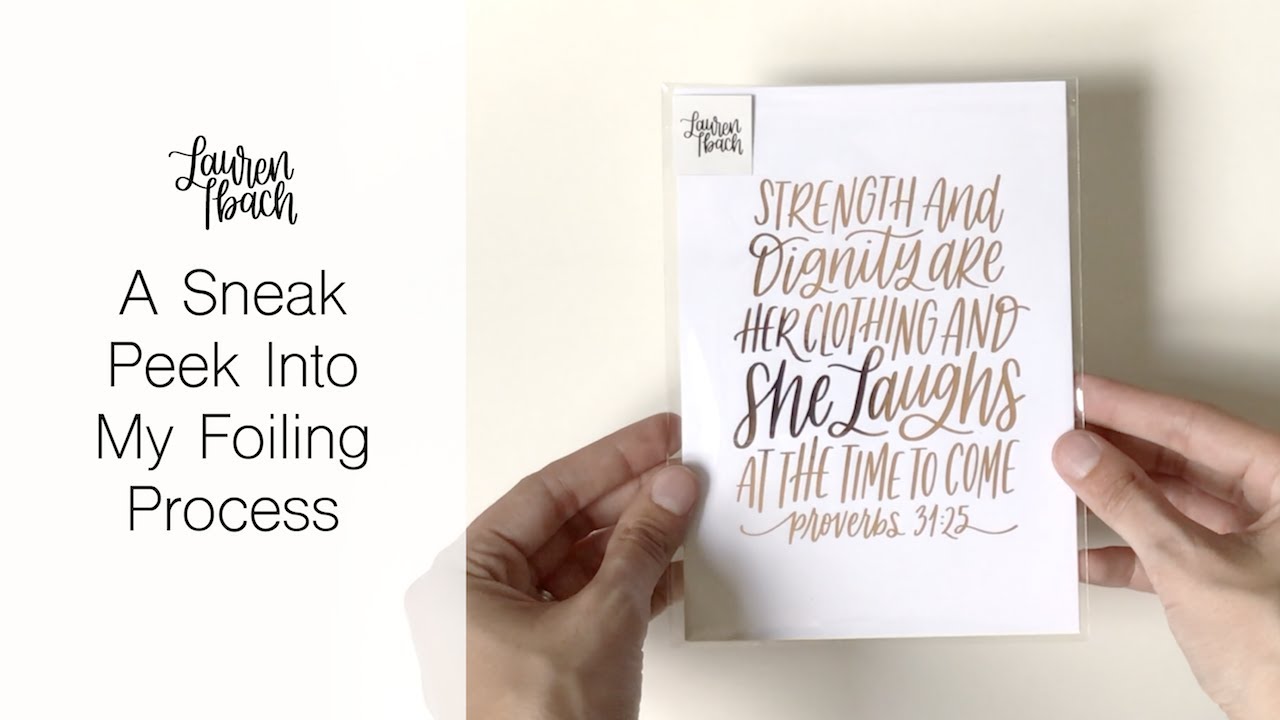 Lauren
bach
A Sneak
Peek Into
My Foiling
Process
Lauren
bach
STRENGTH And
Dignity are
HER CLOTHING AND
She Laughs
AT THE TIME TO COME
proverbs 31:25